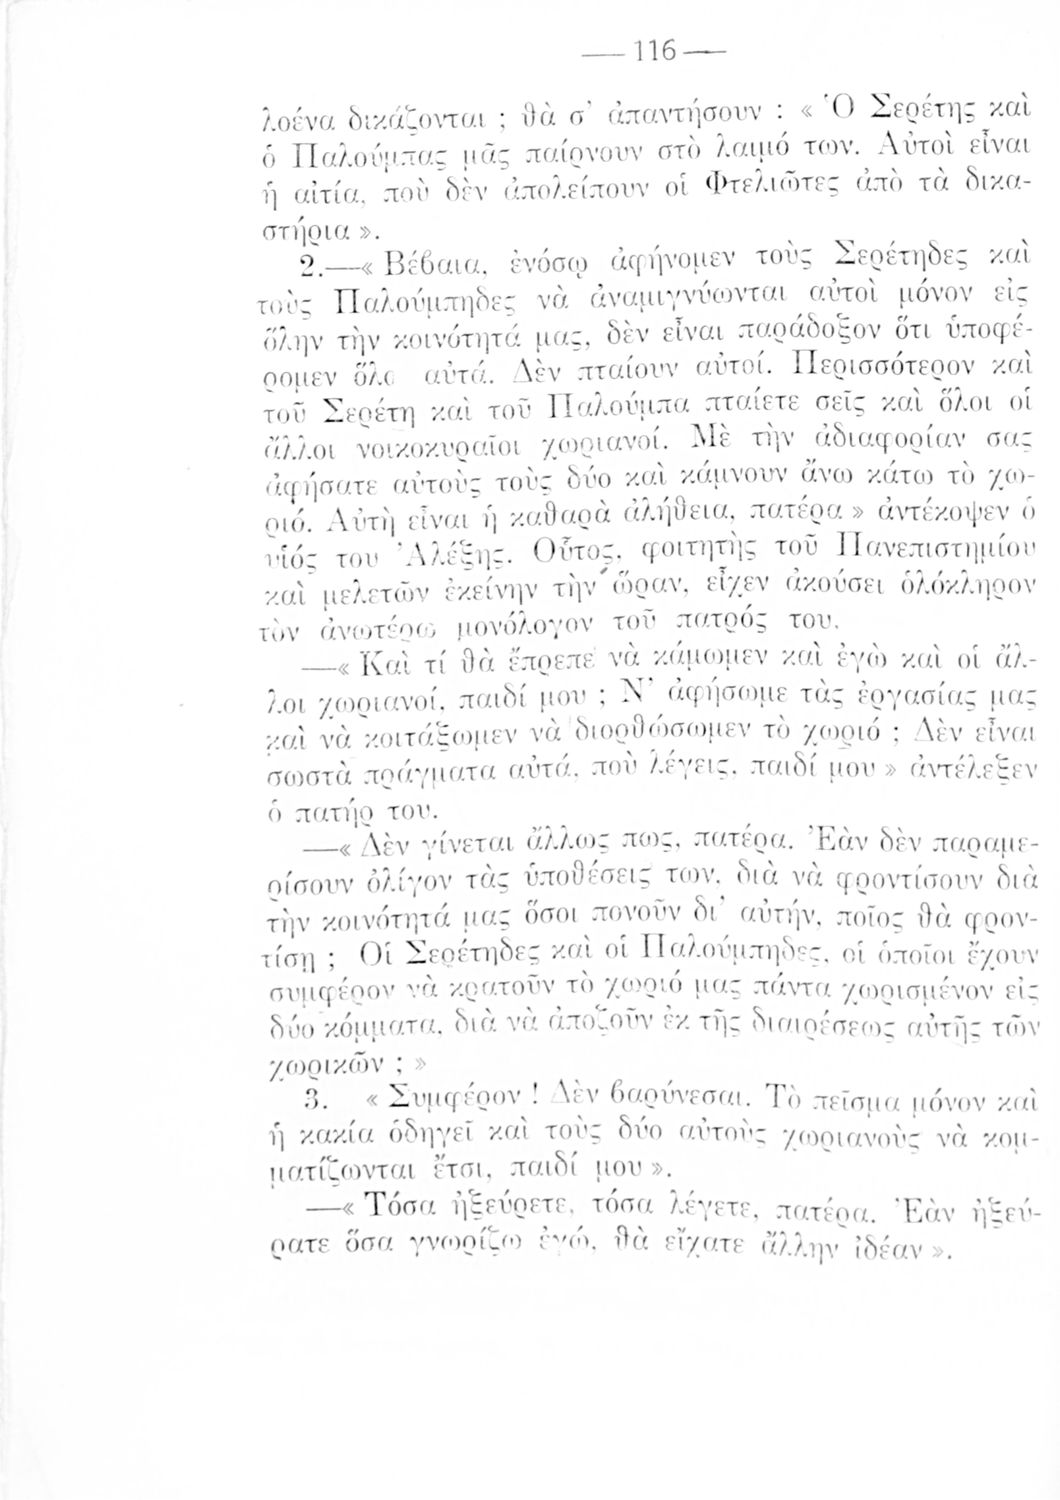 — 116 —
λοένα δικάζονται ; θὰ σ’ ἀπαντήσουν : « Ὁ Σερέτης καὶ
ὁ Παλούμπας μᾶς παίρνουν στὸ λαιμό των. Αὐτοὶ εἶναι
ἡ αἰτία, ποὺ δὲν ἀπολείπουν οἱ Φτελιῶτες ἀπὸ τὰ δικα-
στήρια ».
2.—« Βέβαια, ἐνόσῳ ἀφήνομεν τοὺς Σερέτηδες καὶ
τοὺς Παλούμπηδες νὰ ἀναμιγνύωνται αὐτοὶ μόνον εἰς
ὅλην τὴν κοινότητά μας, δὲν εἶναι παράδοξον ὅτι ὑποφέ-
ρομεν ὅλα αὐτά. Δὲν πταίουν αὐτοί. Περισσότερον καὶ
τοῦ Σερέτη καὶ τοῦ Παλούμπα πταίετε σεῖς καὶ ὅλοι οἱ
ἄλλοι νοικοκυραῖοι χωριανοί. Μὲ τὴν ἀδιαφορίαν σας
ἀφήσατε αὐτοὺς τοὺς δύο καὶ κάμνουν ἄνω κάτω τὸ χω-
ριό. Αὐτὴ εἶναι ἡ καθαρὰ ἀλήθεια, πατέρα » ἀντέκοψεν ὁ
υἱός του Ἀλέξης. Οὗτος, φοιτητὴς τοῦ Πανεπιστημίου
καὶ μελετῶν ἐκείνην τὴν ὥραν, εἶχεν ἀκούσει ὁλόκληρον
τὸν ἀνωτέρω μονόλογον τοῦ πατρός του.
—« Καὶ τί θὰ ἔπρεπε νὰ κάμωμεν καὶ ἐγὼ καὶ οἱ ἄλ-
λοι χωριανοί, παιδί μου ; Ν’ ἀφήσωμε τὰς ἐργασίας μας
καὶ νὰ κοιτάξωμεν νὰ διορθώσωμεν τὸ χωριό ; Δὲν εἶναι
σωστὰ πράγματα αὐτά, ποὺ λέγεις, παιδί μου » ἀντέλεξεν
ὁ πατήρ του.
—« Δὲν γίνεται ἄλλως πως, πατέρα. Ἐὰν δὲν παραμε-
ρίσουν ὀλίγον τὰς ὑποθέσεις των, διὰ νὰ φροντίσουν διὰ
τὴν κοινότητά μας ὅσοι πονοῦν δι’ αὐτήν, ποῖος θὰ φρον-
τίσῃ ; Οἱ Σερέτηδες καὶ οἱ Παλούμπηδες, οἱ ὁποῖοι ἔχουν
συμφέρον νὰ κρατοῦν τὸ χωριό μας πάντα χωρισμένον εἰς
δύο κόμματα, διὰ νὰ ἀποζοῦν ἐκ τῆς διαιρέσεως αὐτῆς τῶν
χωρικῶν ; »
3. « Συμφέρον ! Δὲν βαρύνεσαι. Τὸ πεῖσμα μόνον καὶ
ἡ κακία ὁδηγεῖ καὶ τοὺς δύο αὐτοὺς χωριανοὺς νὰ κομ-
ματίζωνται ἔτσι, παιδί μου ».
—« Τόσα ἠξεύρετε, τόσα λέγετε, πατέρα. Ἐὰν ἠξεύ-
ρατε ὅσα γνωρίζω ἐγώ, θὰ εἴχατε ἄλλην ἰδέαν ».